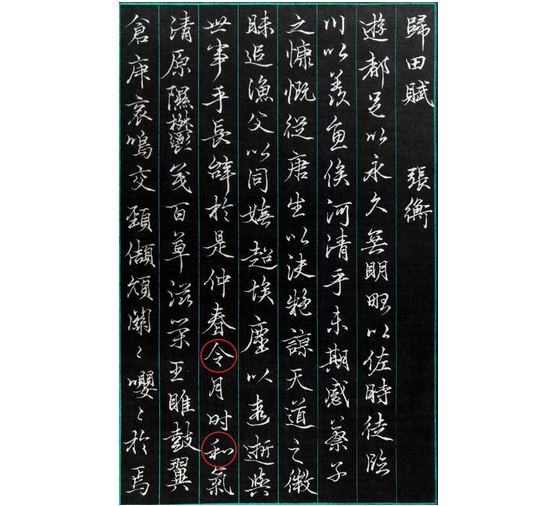 歸田賦 張衡
遊都邑以永久無明略以佐時徒臨
川以羨魚俟河清乎未期感蔡子
之慷慨從唐生以決疑諒天道之微
昧追漁父以同嬉超埃塵以遐逝與
世事乎長辭於是仲春令月时和氣
清原隰鬱茂百草滋榮王雎鼓翼
倉庚哀鳴交頸頡頏關々嚶々於焉